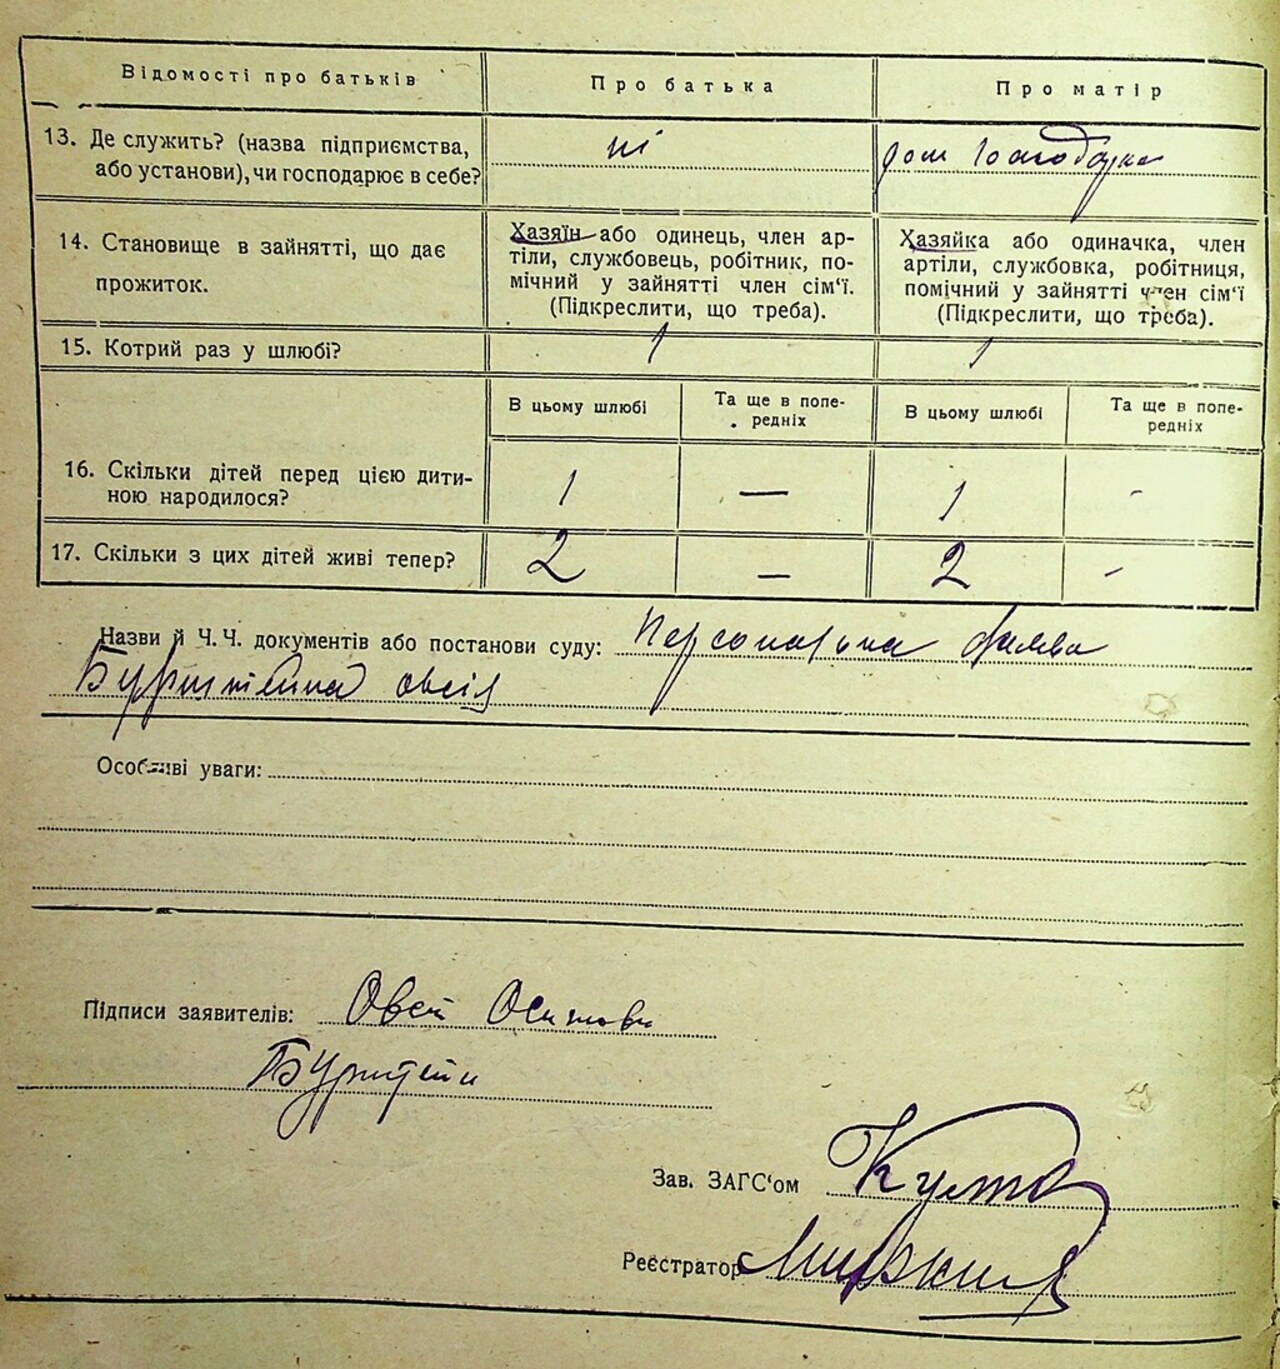 Відомості про батьків
Про батька
Про матір
13. Де служить? (назва підприємства, або установи), чи господарює в себе?
ні
дом
14. Становище в зайнятті, що дає прожиток.
Хазяїн або одинець, член ар-
тіли, службовець, робітник, по-
мічний у зайнятті член сім‘ї.
(Підкреслити, що треба).
Хазяйка або одиначка, член
артіли, службовка, робітниця,
помічний у зайнятті член сім‘ї
(Підкреслити, що треба).
15. Котрий раз у шлюбі?
1
1
В цьому шлюбі
Та ще в попе-
редніх
В цьому шлюбі
Та ще в попе-
редніх
16. Скільки дітей перед цією дити-
ною народилося?
1
—
1
-
17. Скільки з цих дітей живі тепер?
2
—
2
-
Назви й Ч.Ч. документів або постанови суду: Персональна заява
Бурштейна Овсія
Особливі уваги:
Підписи заявителів: Овсій
Бурштейн
Зав. ЗАГС‘ом
Реєстратор